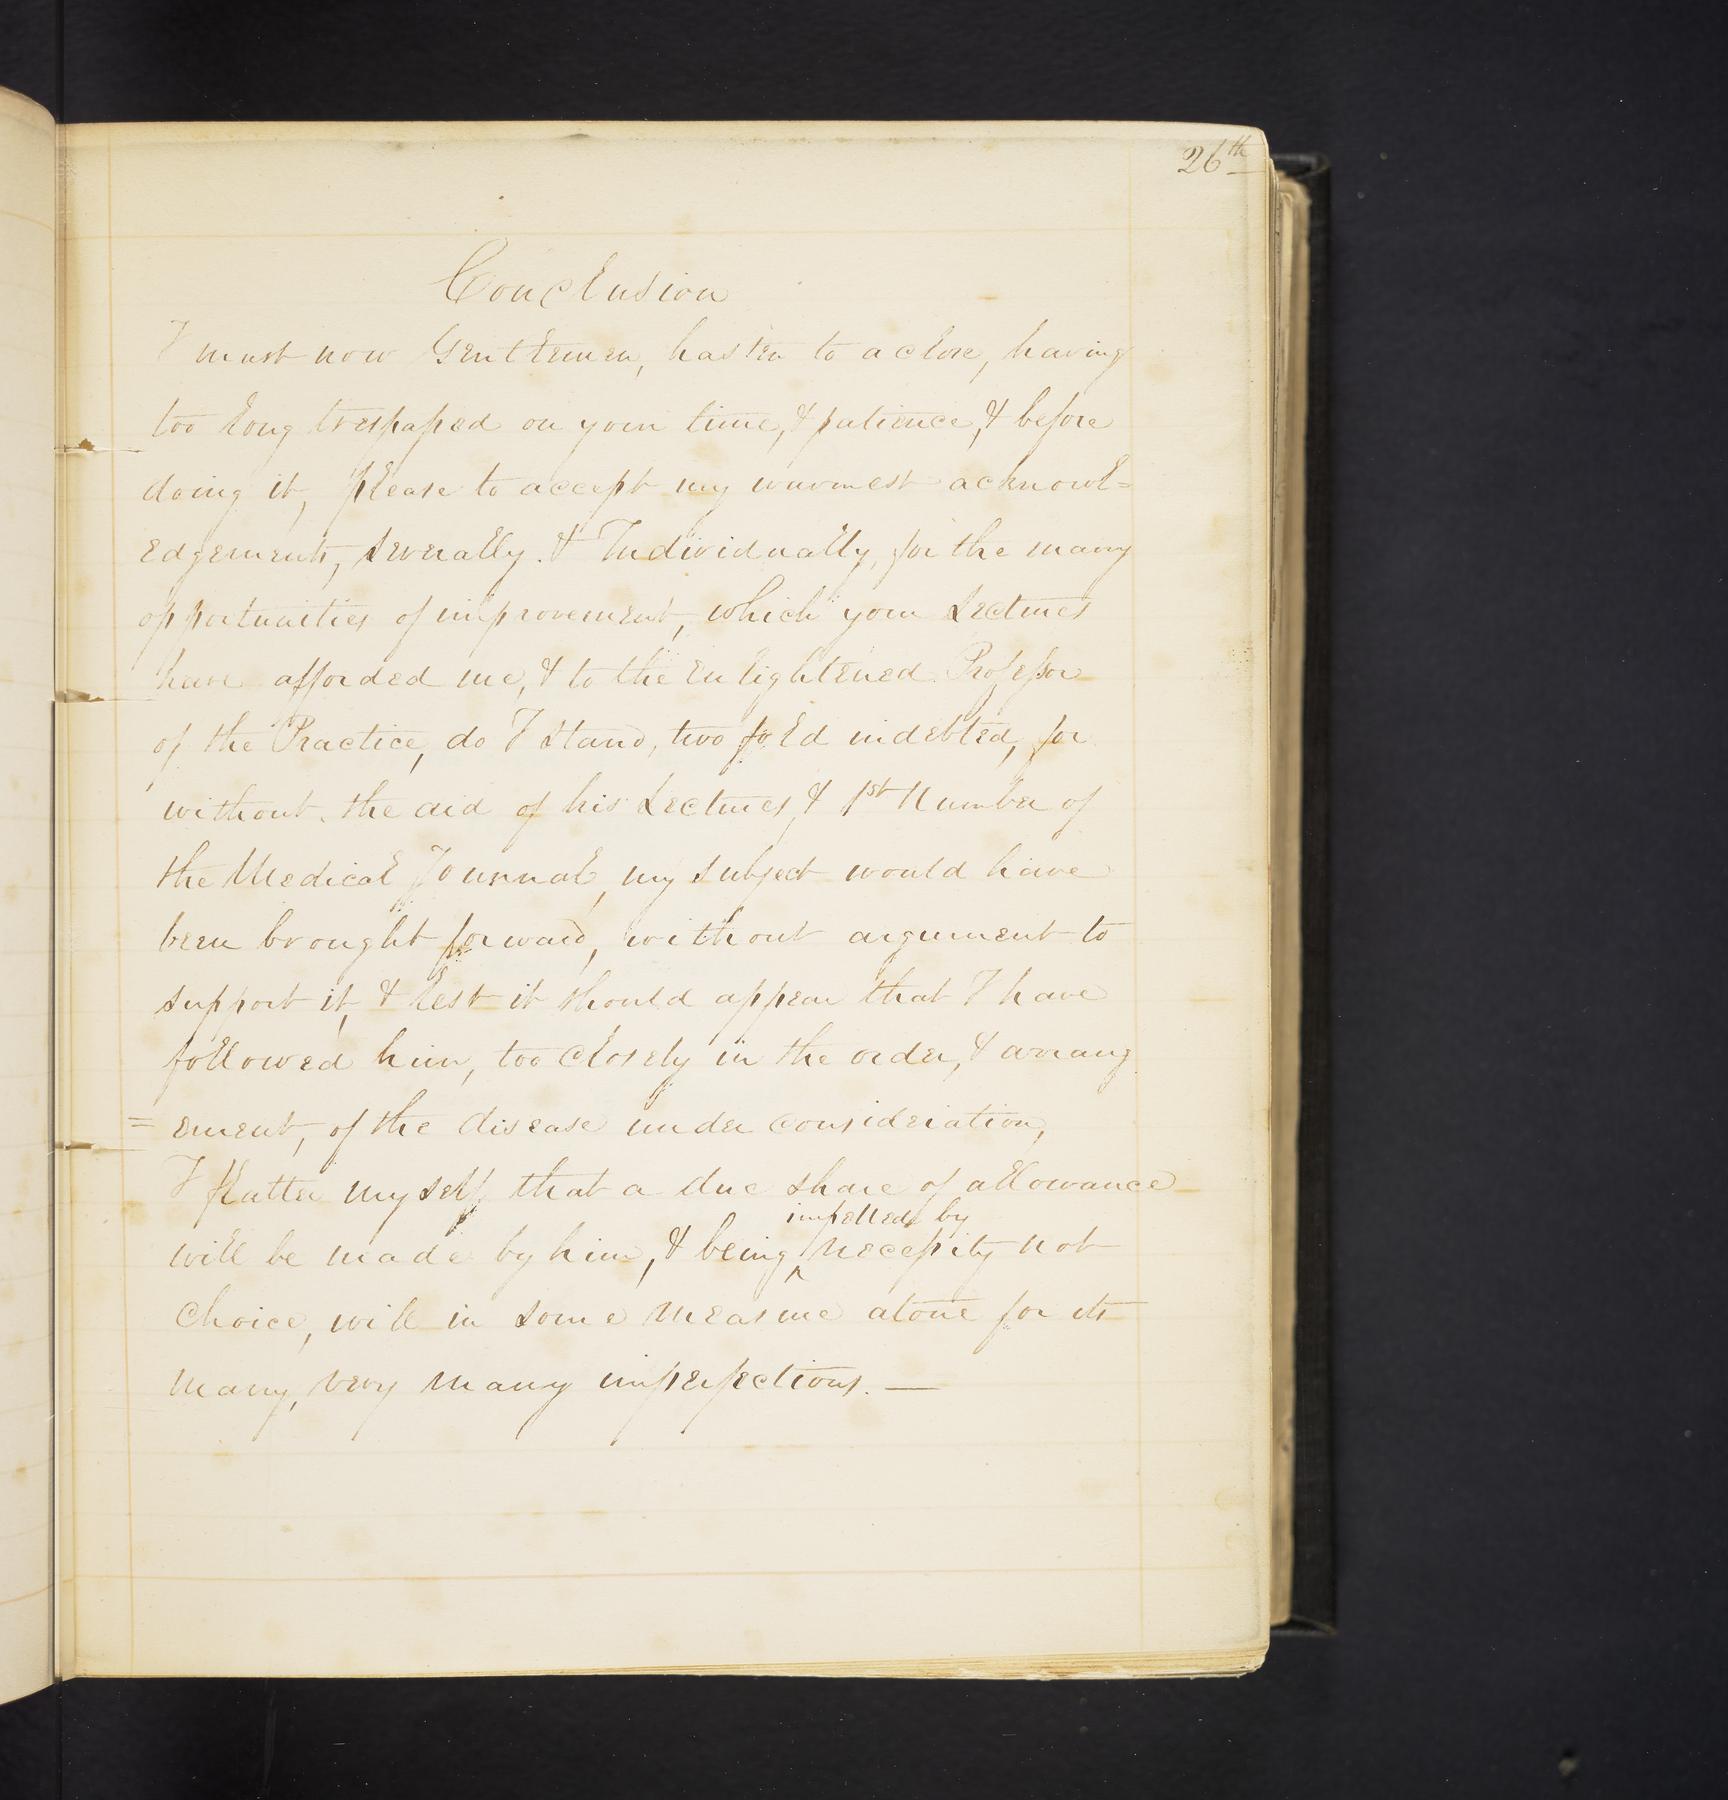 26th
Conclusion
I must now Gentlemen, hasten to a close, having
too long trespassed on your time, & patience, & before
doing it, please to accept my warmest acknowl=
edgements, severally. & Individually, for the many
opportunities of improvement, which your Lectures
have afforded me, & to the enlightened Professor
of the Practice, do I stand, two fold indebted, for
without the aid of his Lectures, & 1st Number of
the Medical Journal, my subject would have
been brought forward, without argument to
support it, & lest it should appear that I have
followed him, too closely in the order, & arrang
=ement, of the disease under consideration,
I flatter myself that a due share of allowance
impelled by
will be made by him, & being ^ necessity not
choice, will in some measure atone for its
many, very many imperfections. —